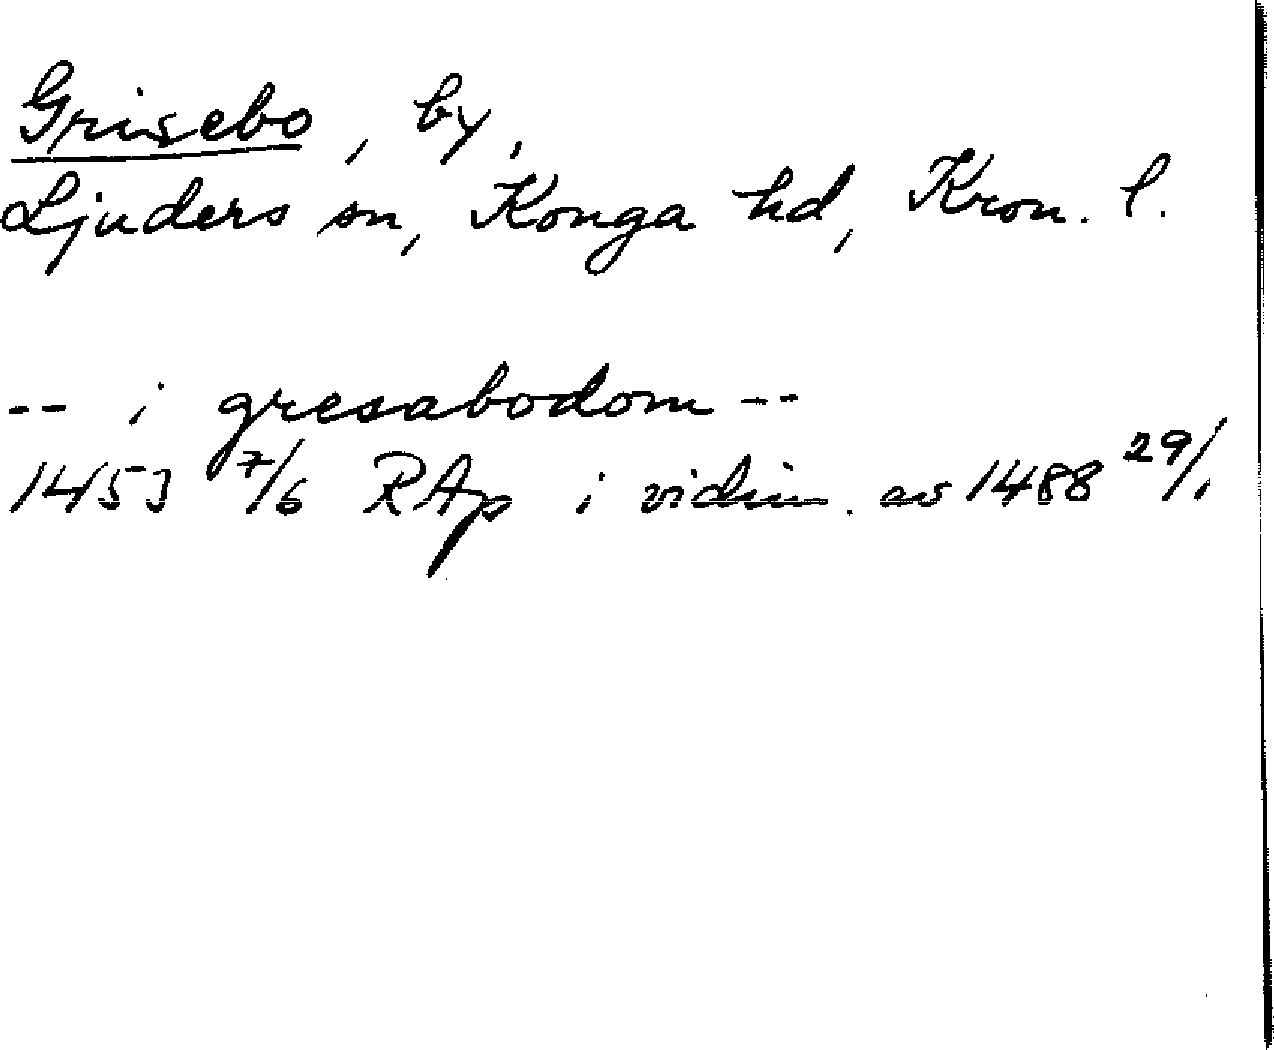 Grisebo, by,
Ljuders sn, Konga hd, Kron. l.
-- i gresabodom --
1453 7/6 RAp i vidim. av 1488 29/1